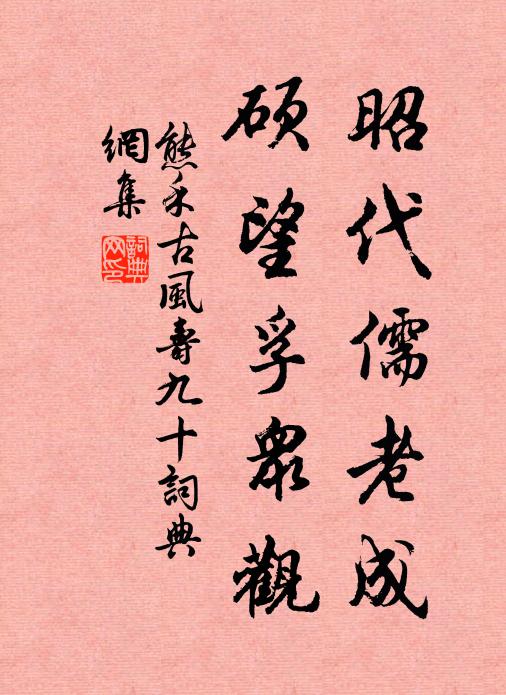 昭代儒老成
碩望孚衆觀
熊禾古風壽九十詞典
網集
詞典网印